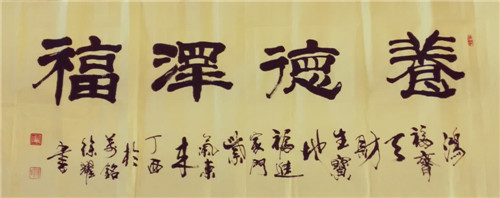 養德澤福
鴻福齊天財生寶地福進家門紫氣東來丁酉於萬銘徐耀書